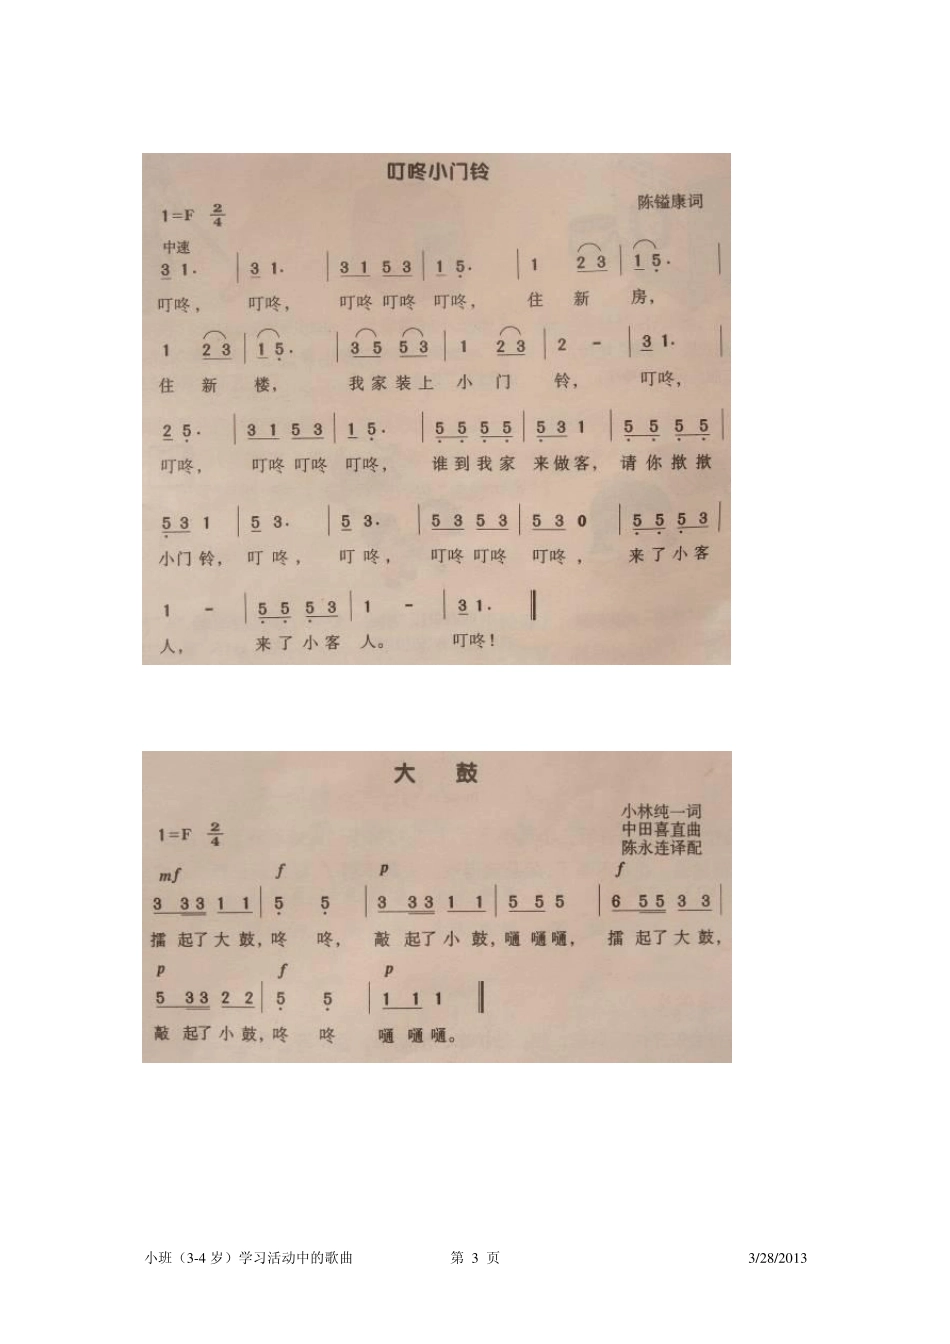 叮咚小门铃
陈镒康词
1=F 2/4
中速
3 1· | 3 1· | 3 1 5 3 | 1 5· | 1 2 3 | 1 5· |
叮咚， 叮咚， 叮咚 叮咚 叮咚， 住 新 房，
1 2 3 | 1 5· | 3 5 5 3 | 1 2 3 | 2 - | 3 1· |
住 新 楼， 我 家 装 上 小 门 铃， 叮咚，
2 5· | 3 1 5 3 | 1 5· | 5 5 5 5 | 5 3 1 | 5 5 5 5 |
叮咚， 叮咚 叮咚 叮咚， 谁 到 我 家 来 做 客， 请 你 揿 揿
5 3 1 | 5 3· | 5 3· | 5 3 5 3 | 5 3 0 | 5 5 5 3 |
小 门 铃， 叮 咚， 叮 咚， 叮咚 叮咚 叮咚， 来 了 小 客
1 - | 5 5 5 3 | 1 - | 3 1· ‖
人， 来 了 小 客 人。 叮咚！
大 鼓
小林纯一词
中田喜直曲
陈永连译配
1=F 2/4
mf f p f
3 3 3 1 1 | 5 5 | 3 3 3 1 1 | 5 5 5 | 6 5 5 3 3 |
擂 起了 大 鼓， 咚 咚， 敲 起了 小 鼓， 嗵 嗵 嗵， 擂 起了 大 鼓，
p f p
5 3 3 2 2 | 5 5 | 1 1 1 ‖
敲 起了 小 鼓， 咚 咚 嗵 嗵 嗵。
小班（3-4 岁）学习活动中的歌曲 第 3 页 3/28/2013